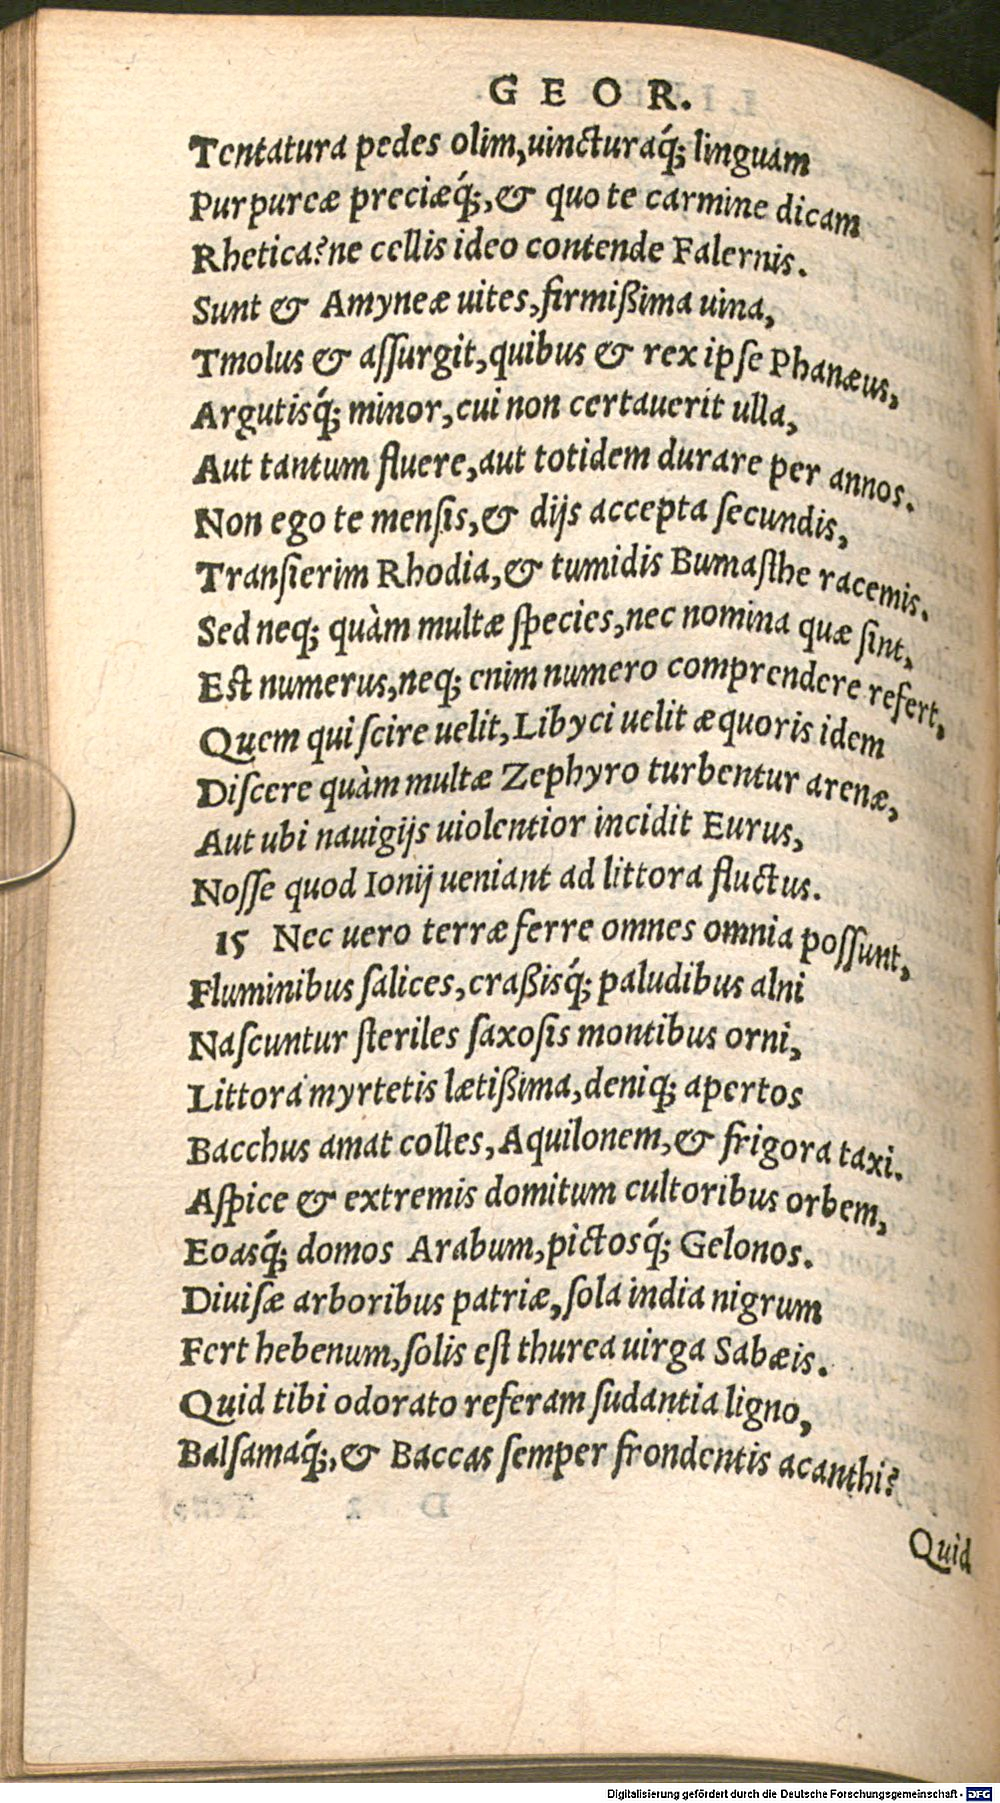 GEOR.
Tentatura pedes olim,uincturaq́; linguam
Purpureæ preciæq́;,& quo te carmine dicam
Rhetica?ne cellis ideo contende Falernis.
Sunt & Amyneæ uites,firmißima uina,
Tmolus & aſſurgit,quibus & rex ipſe Phanæus,
Argutisq́; minor,cui non certauerit ulla,
Aut tantum fluere,aut totidem durare per annos.
Non ego te menſis,& dijs accepta ſecundis,
Tranſierim Rhodia,& tumidis Bumaſthe racemis.
Sed neq; quàm multæ ſpecies,nec nomina quæ ſint,
Est numerus,neq; enim numero comprendere refert,
Quem qui ſcire uelit,Libyci uelit æquoris idem
Diſcere quàm multæ Zephyro turbentur arenæ,
Aut ubi nauigijs uiolentior incidit Eurus,
Noſſe quod Ionij ueniant ad littora fluctus.
15 Nec uero terræ ferre omnes omnia poſſunt,
Fluminibus ſalices,craßisq́; paludibus alni
Naſcuntur ſteriles ſaxoſis montibus orni,
Littora myrtetis lætißima,deniq; apertos
Bacchus amat colles,Aquilonem,& frigora taxi.
Aſpice & extremis domitum cultoribus orbem,
Eoasq́; domos Arabum,pictosq́; Gelonos.
Diuiſæ arboribus patriæ,ſola india nigrum
Fert hebenum,ſolis eſt thurea uirga Sabæis.
Quid tibi odorato referam ſudantia ligno,
Balſamaq́;,& Baccas ſemper frondentis acanthi?
Quid
Digitalisierung gefördert durch die Deutsche Forschungsgemeinschaft - DFG